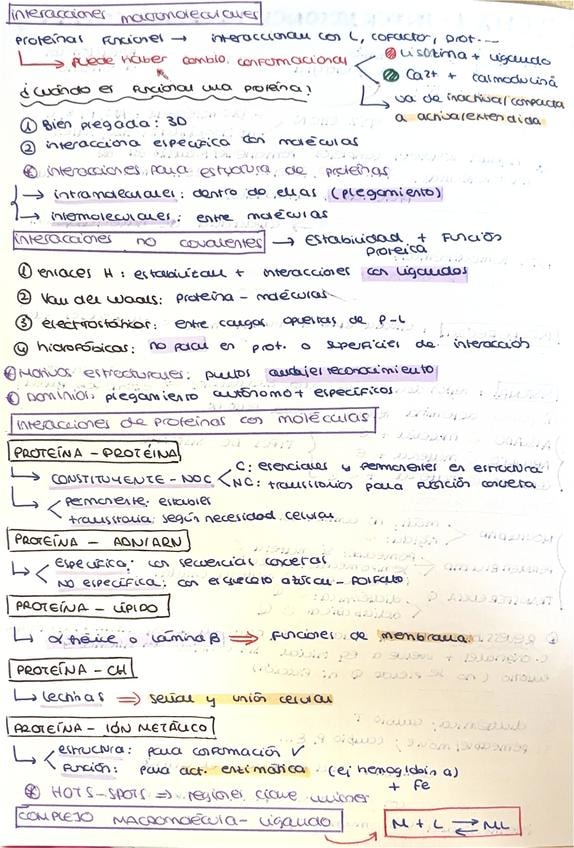 interacciones macromoleculares
proteínas funciones → interaccionan con L, cofactor, prot...
puede haber cambio conformacional
Lisozima + ligando
Ca2+ + calmodulina
va de inactiva/compacta
a activa/extendida
¿Cuándo es funcional una proteína?
① Bien plegada: 3D
② interacciona específica con moléculas
interacciones para estructura de proteínas
→ intramoleculares: dentro de ellas (plegamiento)
→ intermoleculares: entre moléculas
interacciones no covalentes → Estabilidad + Función
proteica
① enlaces H: estabilizan + interacciones con ligandos
② Van der Waals: proteína - moléculas
③ electrostáticas: entre cargas opuestas de P-L
④ hidrofóbicas: no polar en prot. o superficies de interacción
Motivos estructurales: puntos anclajes reconocimiento
Dominios: plegamiento autónomo + específicos
Interacciones de proteínas con moléculas
PROTEÍNA - PROTEÍNA
CONSTITUYENTE - NOC
C: esenciales y permanentes en estructura
NC: transitorios para función concreta
permanente: estables
transitoria: según necesidad celular
PROTEÍNA - ADN/ARN
Específica: con secuencias concretas
NO específica: con esqueleto azúcar - POLFATO
PROTEÍNA - LÍPIDO
α hélice o lámina β ⇒ funciones de membrana
PROTEÍNA - CH
Lectinas ⇒ señal y unión celular
PROTEÍNA - IÓN METÁLICO
estructura: para conformación ✓
Función: para act. enzimática (ej hemoglobina)
+ Fe
HOTS-SPOTS ⇒ regiones clave
COMPLEJO MACROMOLÉCULA - Ligando
M + L ⇌ ML